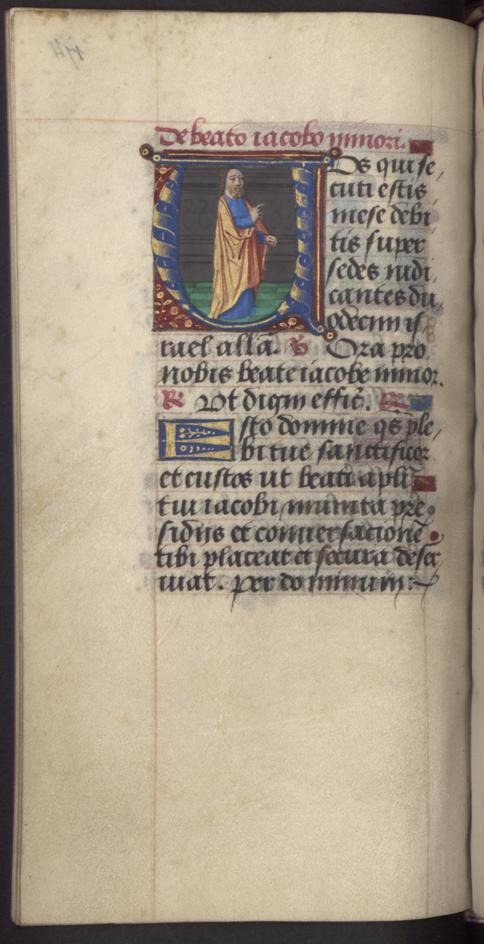 De beato iacobo minori.
Vos qui se/
cuti estis
me se debi
tis super
sedes iudi
cantes du
odecim is
rael alla. V Ora pro
nobis beate iacobe minor.
R Vt digni effic̄.
Esto domine qs ple/
bi tue sanctificor
et custos ut beati apl̄i
tui iacobi munita pre
sidiis et conuersacione
tibi placeat et secura deser
uiat. per dominum:~